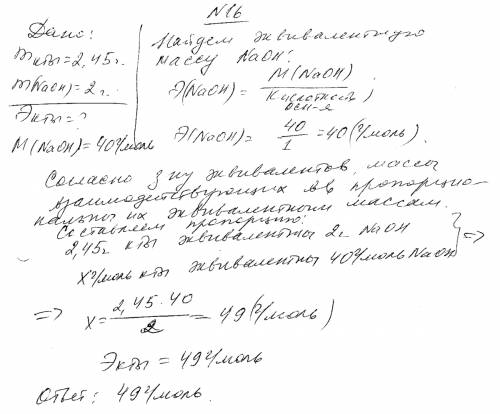 N16
Дано:
mк-ты = 2,45г.
m(NaOH) = 2г.
Эк-ты = ?
M(NaOH) = 40г/моль
Найдем эквивалентную
массу NaOH:
Э(NaOH) = M(NaOH) / кислотность осн-я
Э(NaOH) = 40/1 = 40(г/моль).
Согласно з-ну эквивалентов, массы
взаимодействующих в-в пропорцио-
нальны их эквивалентным массам.
Составляем пропорцию:
2,45г к-ты эквивалентны 2г NaOH
X г/моль к-ты эквивалентны 40г/моль NaOH } =>
=> X = 2,45 · 40 / 2 = 49(г/моль)
Эк-ты = 49г/моль
Ответ: 49г/моль.